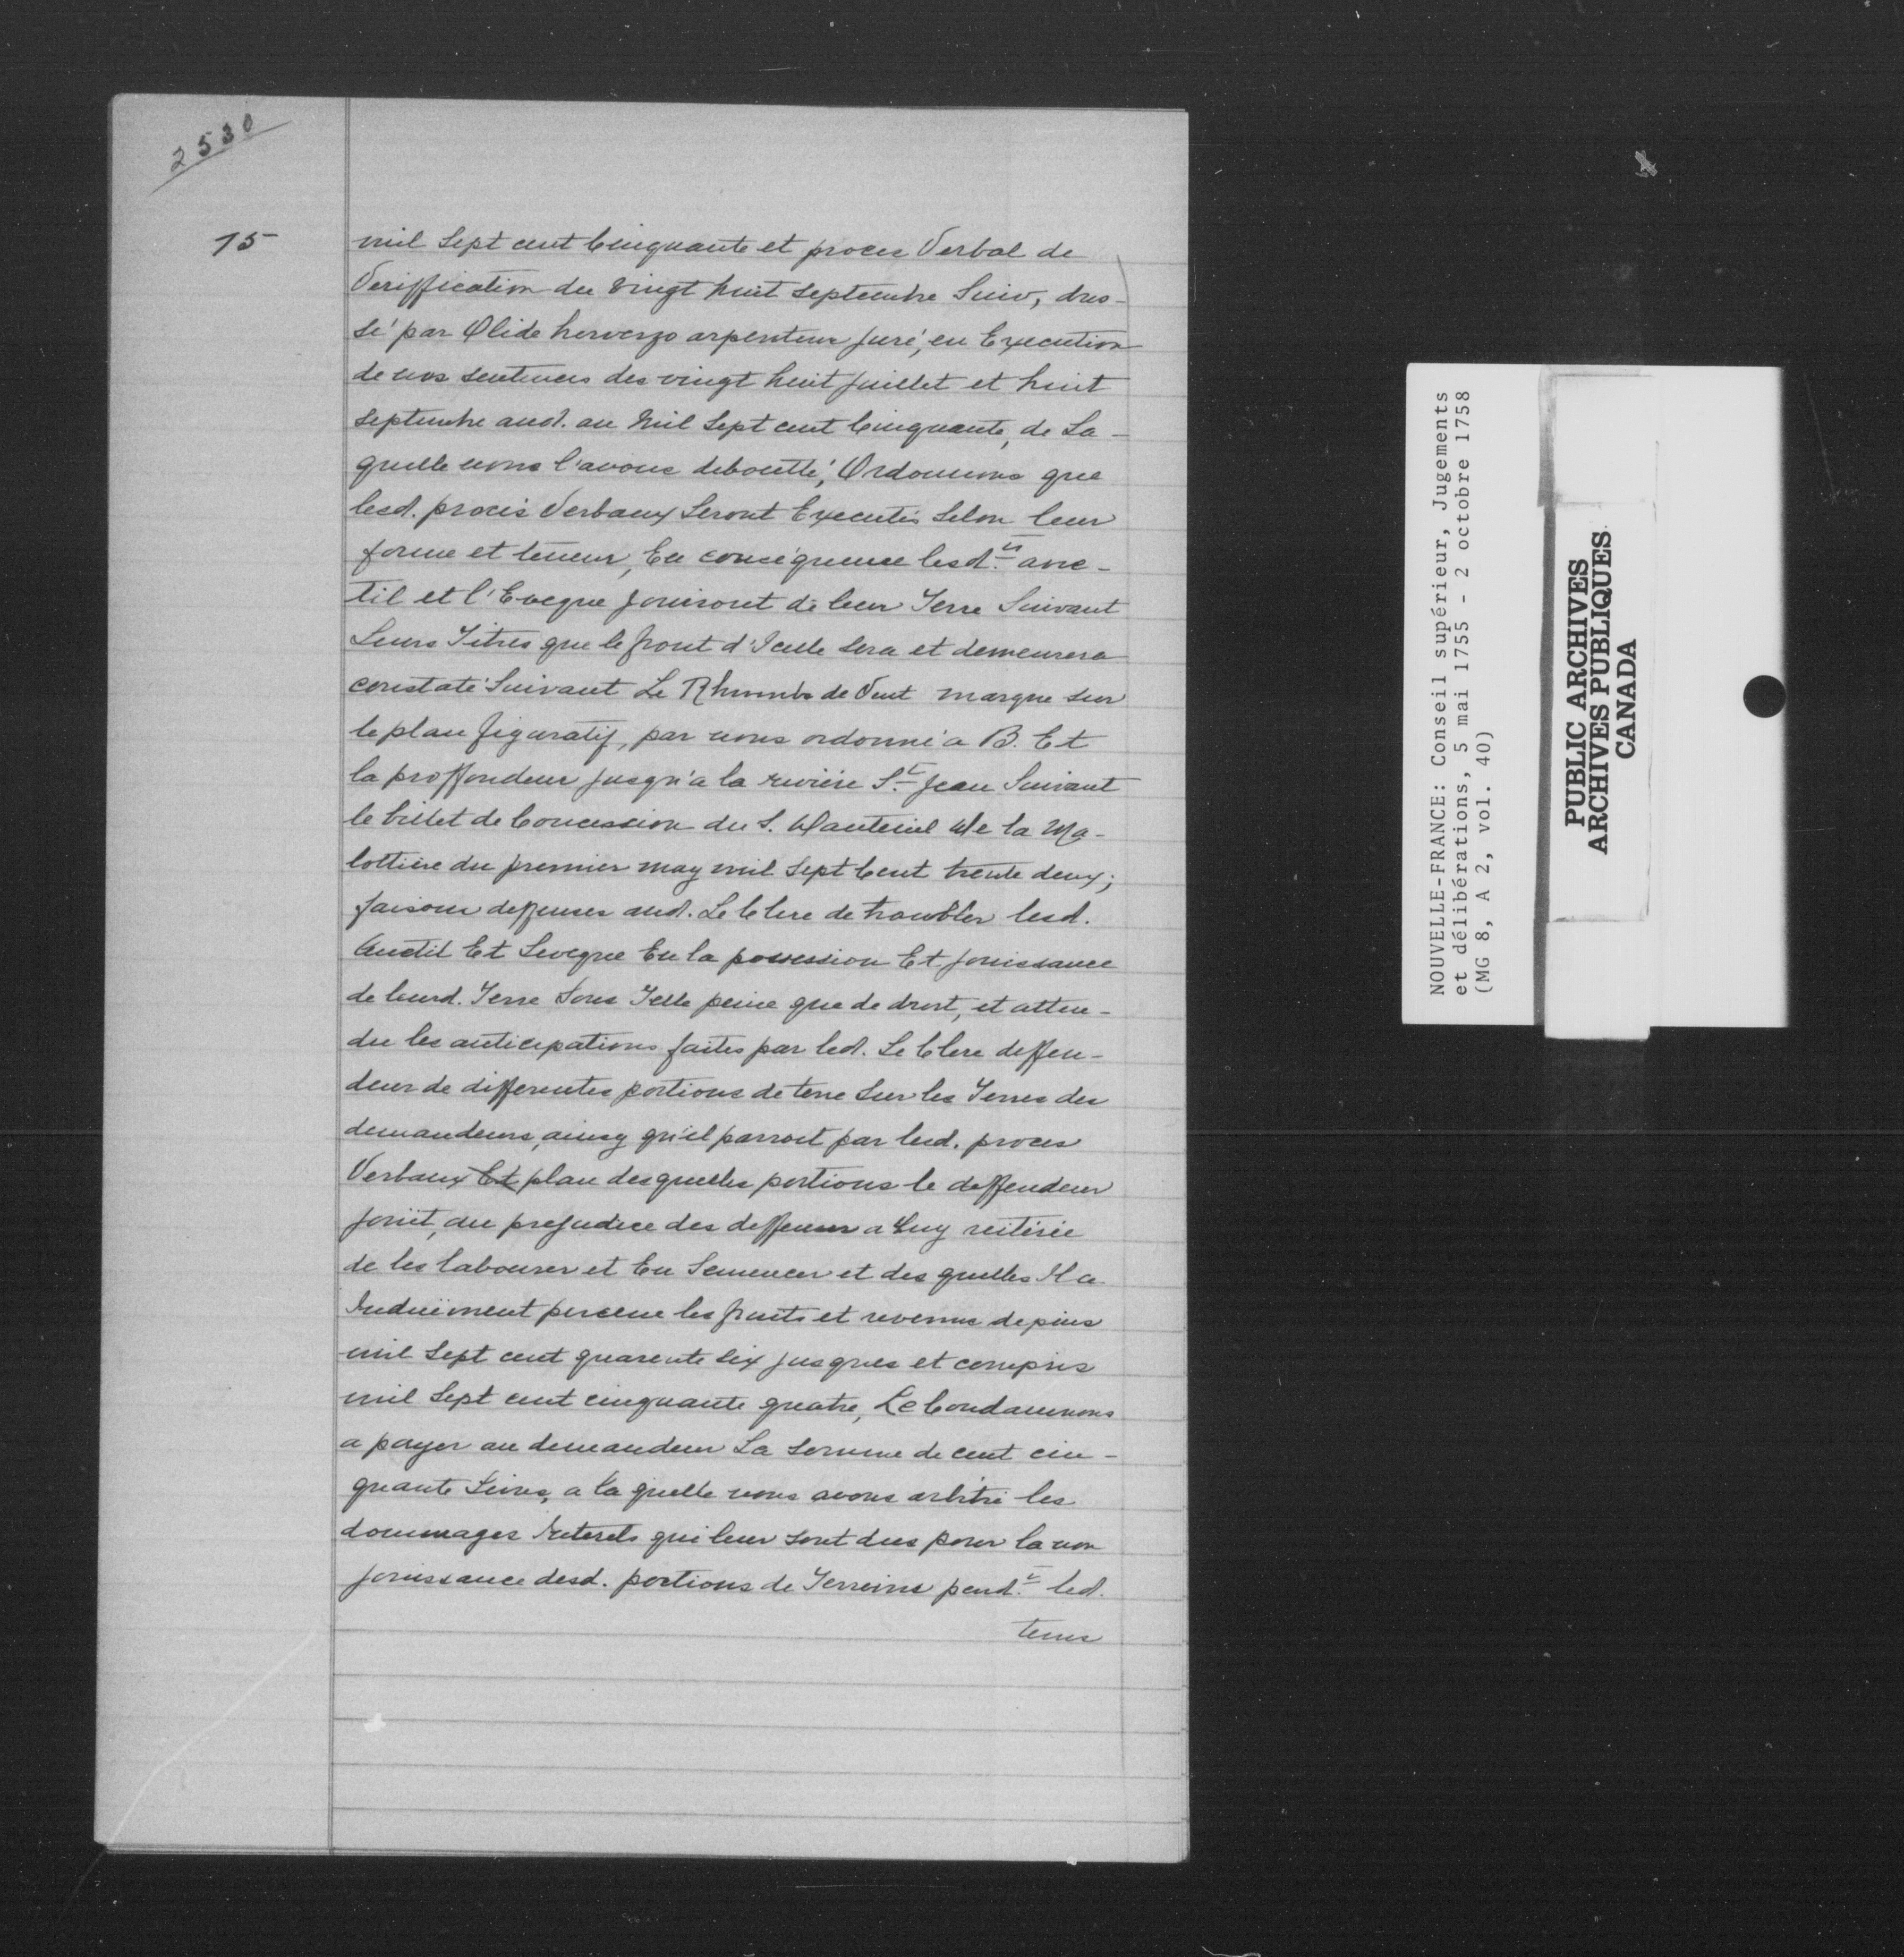 2530
15
mil Sept cent Cinquante et proces Verbal de
Veriffication du vingt huit Septembre Suiv, dres-
sé par Olide herverzo arpenteur juré, en Execution
de nos sentences des vingt huit juillet et huit
Septembre aud. an Mil Sept cent Cinquante, de La-
quelle nous l'avons deboutté, Ordonnons que
lesd. procès Verbaux Seront Executés Selon leur
forme et teneur, En conséquence lesd. anc-
til et l'Eveque jouiront de leur Terre Suivant
Leurs Titres que le front d'Icelle sera et demeurera
constaté Suivant Le Rhumb de Vent marque sur
le plan figuratif, par nous ordonné a B. Et
la proffondeur jusqu'a la rivière St. Jean Suivant
le billet de Concession du S. Dauteuil De la Ma-
lottiere du premier may mil Sept Cent trente deux;
faisons deffenses aud. Le Clerc de troubler lesd.
Anctil Et Leveque En la possession Et jouissance
de leurd. Terre Sous Telle peine que de droit, et atten-
du les anticipations faites par led. Le Clerc deffen-
deur de differentes portions de terre Sur les Terres des
demandeurs, ainsy qu'il parroit par lesd. proces
Verbaux Et plan desquelles portions le deffendeur
jouit, au prejudice des deffenses a Luy reitérée
de les labourer et En Semencer et des quelles Il a
Induëment perceue les fruits et revenus depuis
mil Sept cent quarente Six jusques et compris
mil Sept cent cinquante quatre, Le Condamnons
a payer au demandeur La Somme de cent cin-
quante Livres, a la quelle nous avons arbitré les
dommages Interets qui leur sont dus pour la non
jouissance desd. portions de Terreins pendt. led.
tems
NOUVELLE-FRANCE: Conseil supérieur, Jugements
et délibérations, 5 mai 1755 - 2 octobre 1758
(MG 8, A 2, vol. 40)
PUBLIC ARCHIVES
ARCHIVES PUBLIQUES
CANADA